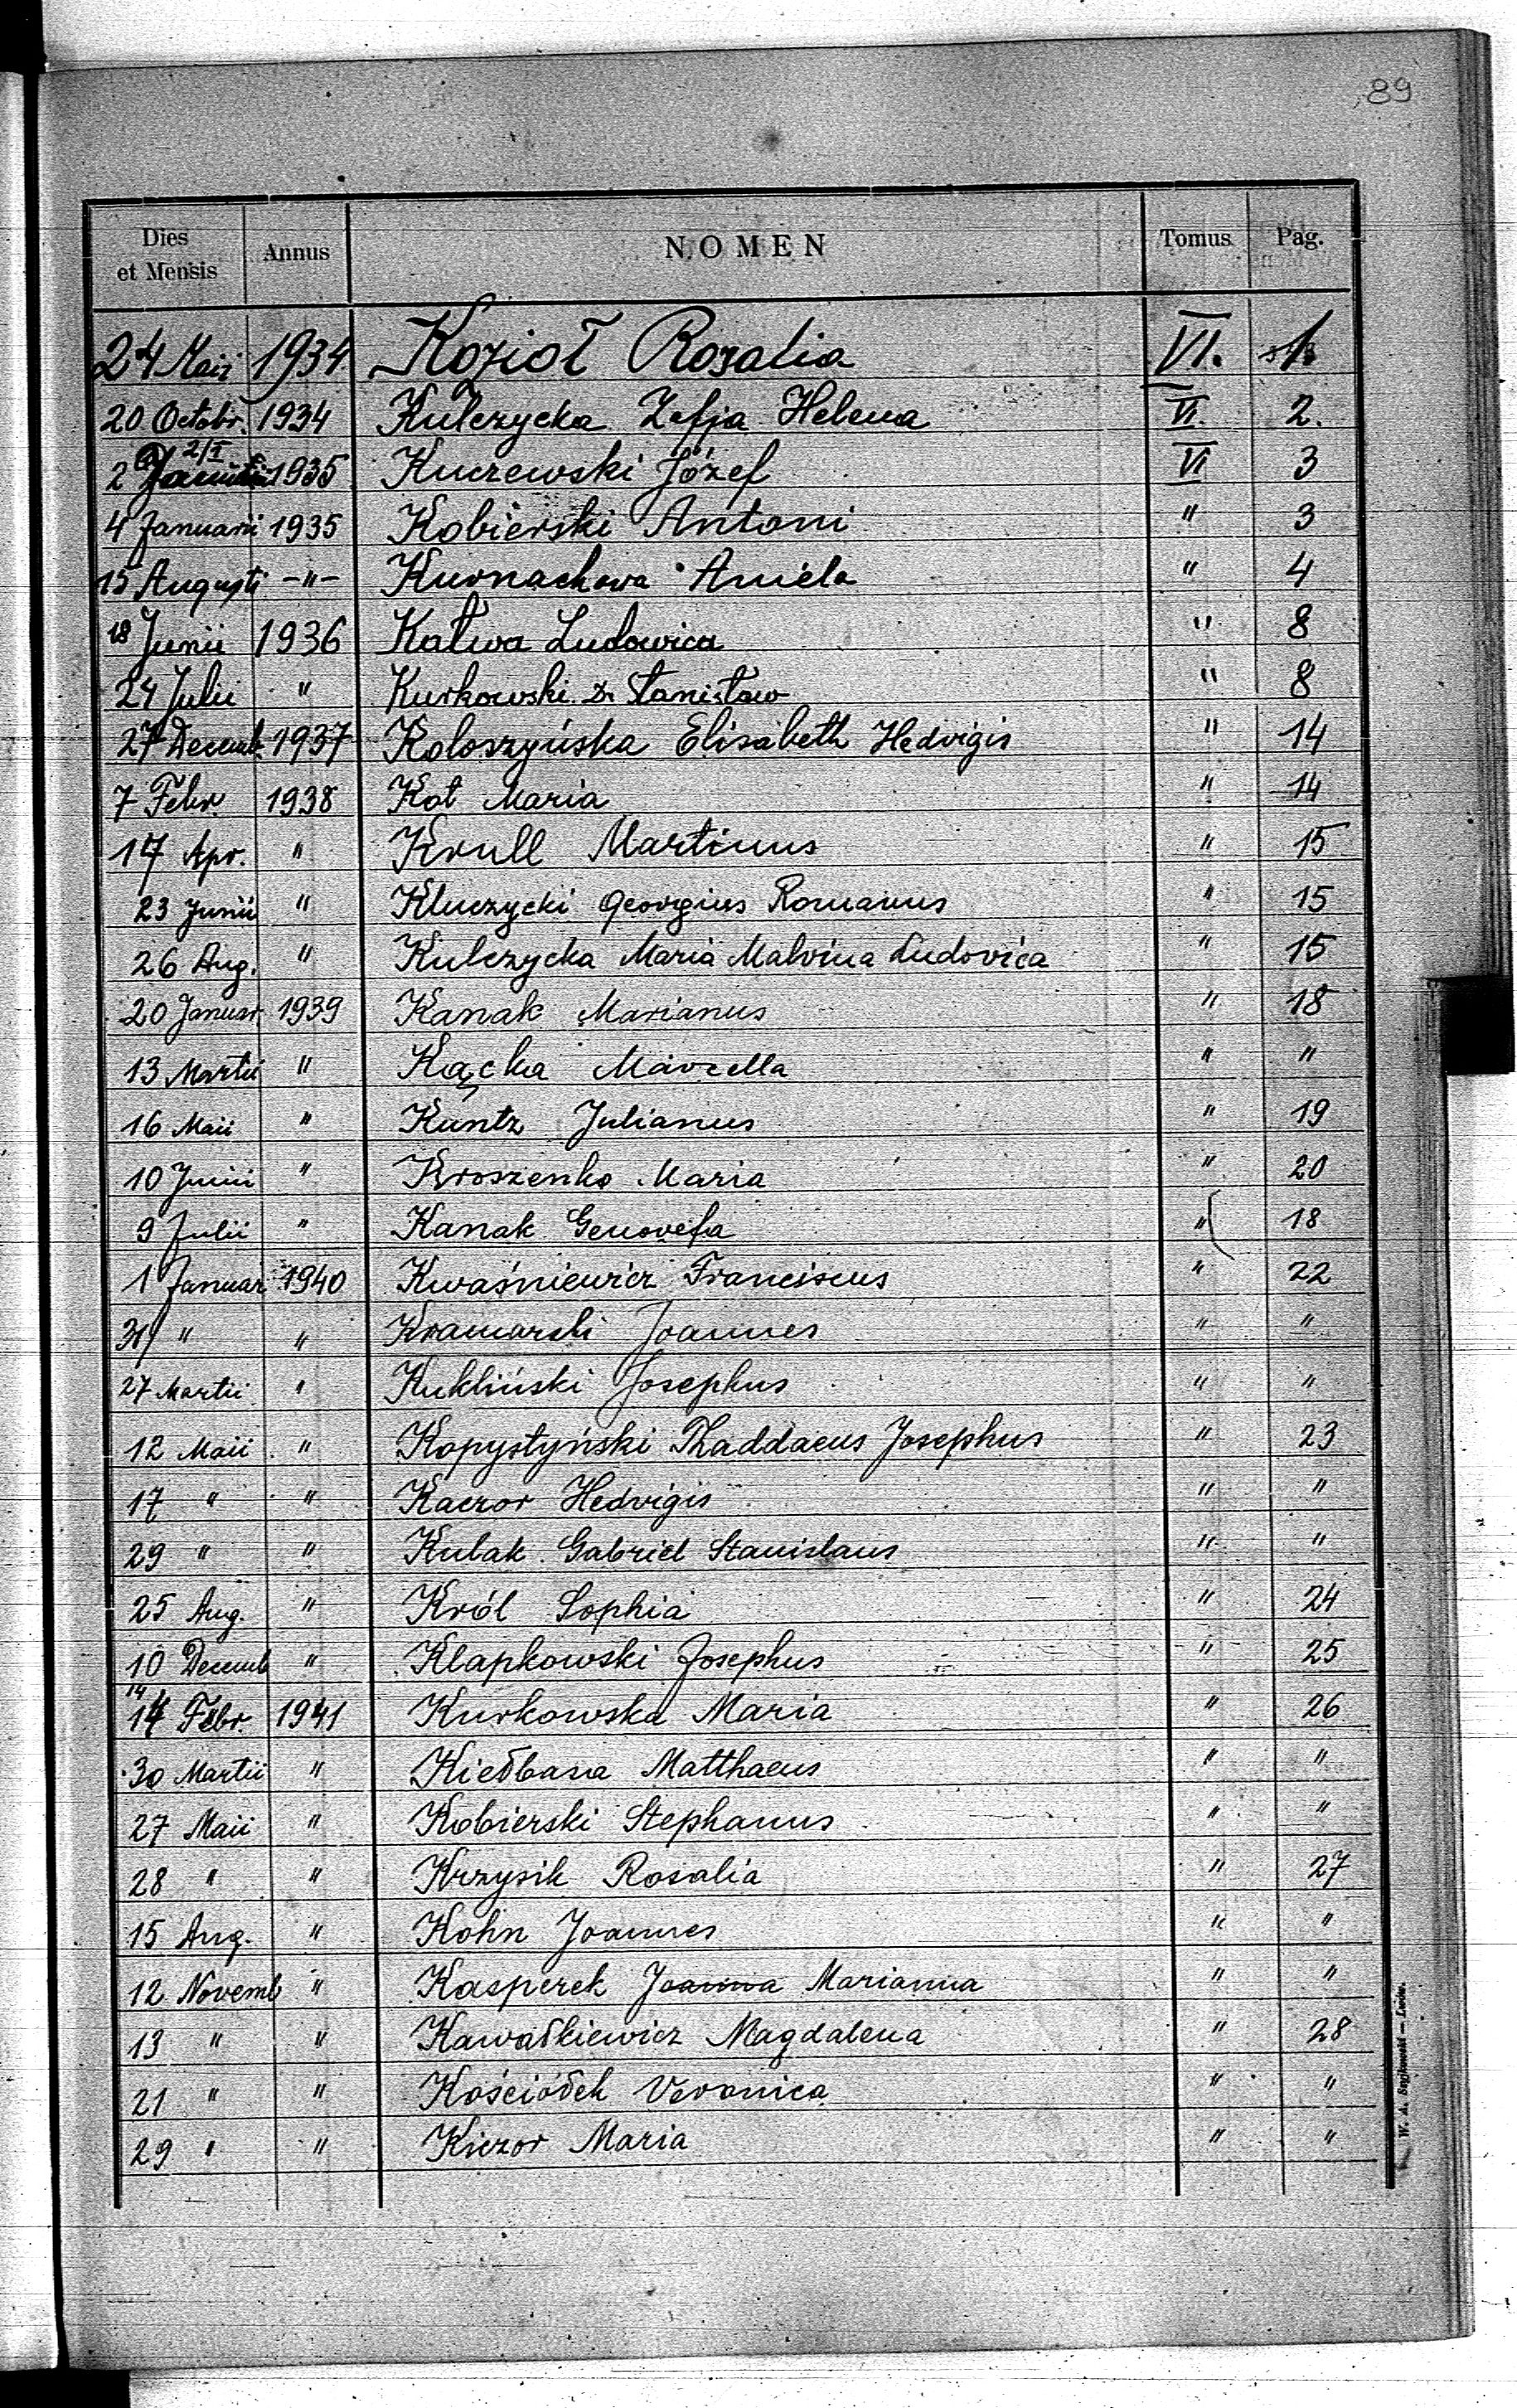 89
Dies et Mensis Annus NOMEN Tomus Pag.
24 Maii 1934 Kozioł Rozalia VI. 1
20 Octobr. 1934 Kulczycka Zofja Helena VI. 2.
2 2/I 1935 Kuczewski Józef VI 3
4 Januarii 1935 Kobierski Antoni " 3
15 Augusti -"- Kurnachowa Aniela " 4
18 Junii 1936 Kalwa Ludowica " 8
24 Julii " Kurkowski Dr Stanisław " 8
27 Decemb. 1937 Koloszyńska Elisabeth Hedvigis " 14
7 Febr. 1938 Kot Maria " 14
17 Apr. " Krull Martinus " 15
23 Junii " Kluczycki Georgius Romanus " 15
26 Aug. " Kulczycka Maria Malvina Ludovica " 15
20 Januar. 1939 Kanak Marianus " 18
13 Martii " Kącka Marcella " "
16 Maii " Kuntz Julianus " 19
10 Junii " Kroszenko Maria " 20
9 Julii " Kanak Genovefa " 18
1 Januar 1940 Kwaśniewicz Franciscus " 22
31 " " Kramarski Joannes " "
27 Martii " Kukliński Josephus " "
12 Maii " Kopystyński Thaddaeus Josephus " 23
17 " " Kaczor Hedvigis " "
29 " " Kulak Gabriel Stanislaus " "
25 Aug. " Król Sophia " 24
10 Decemb " Klapkowski Josephus " 25
14 14 Febr. 1941 Kurkowska Maria " 26
30 Martii " Kiełbasa Matthaeus " "
27 Maii " Kobierski Stephanus " "
28 " " Krzysik Rosalia " 27
15 Aug. " Kohn Joannes " "
12 Novemb " Kasperek Joanna Marianna " "
13 " " Kawałkiewicz Magdalena " 28
21 " " Kościółek Veronica " "
29 " " Kiczor Maria " "